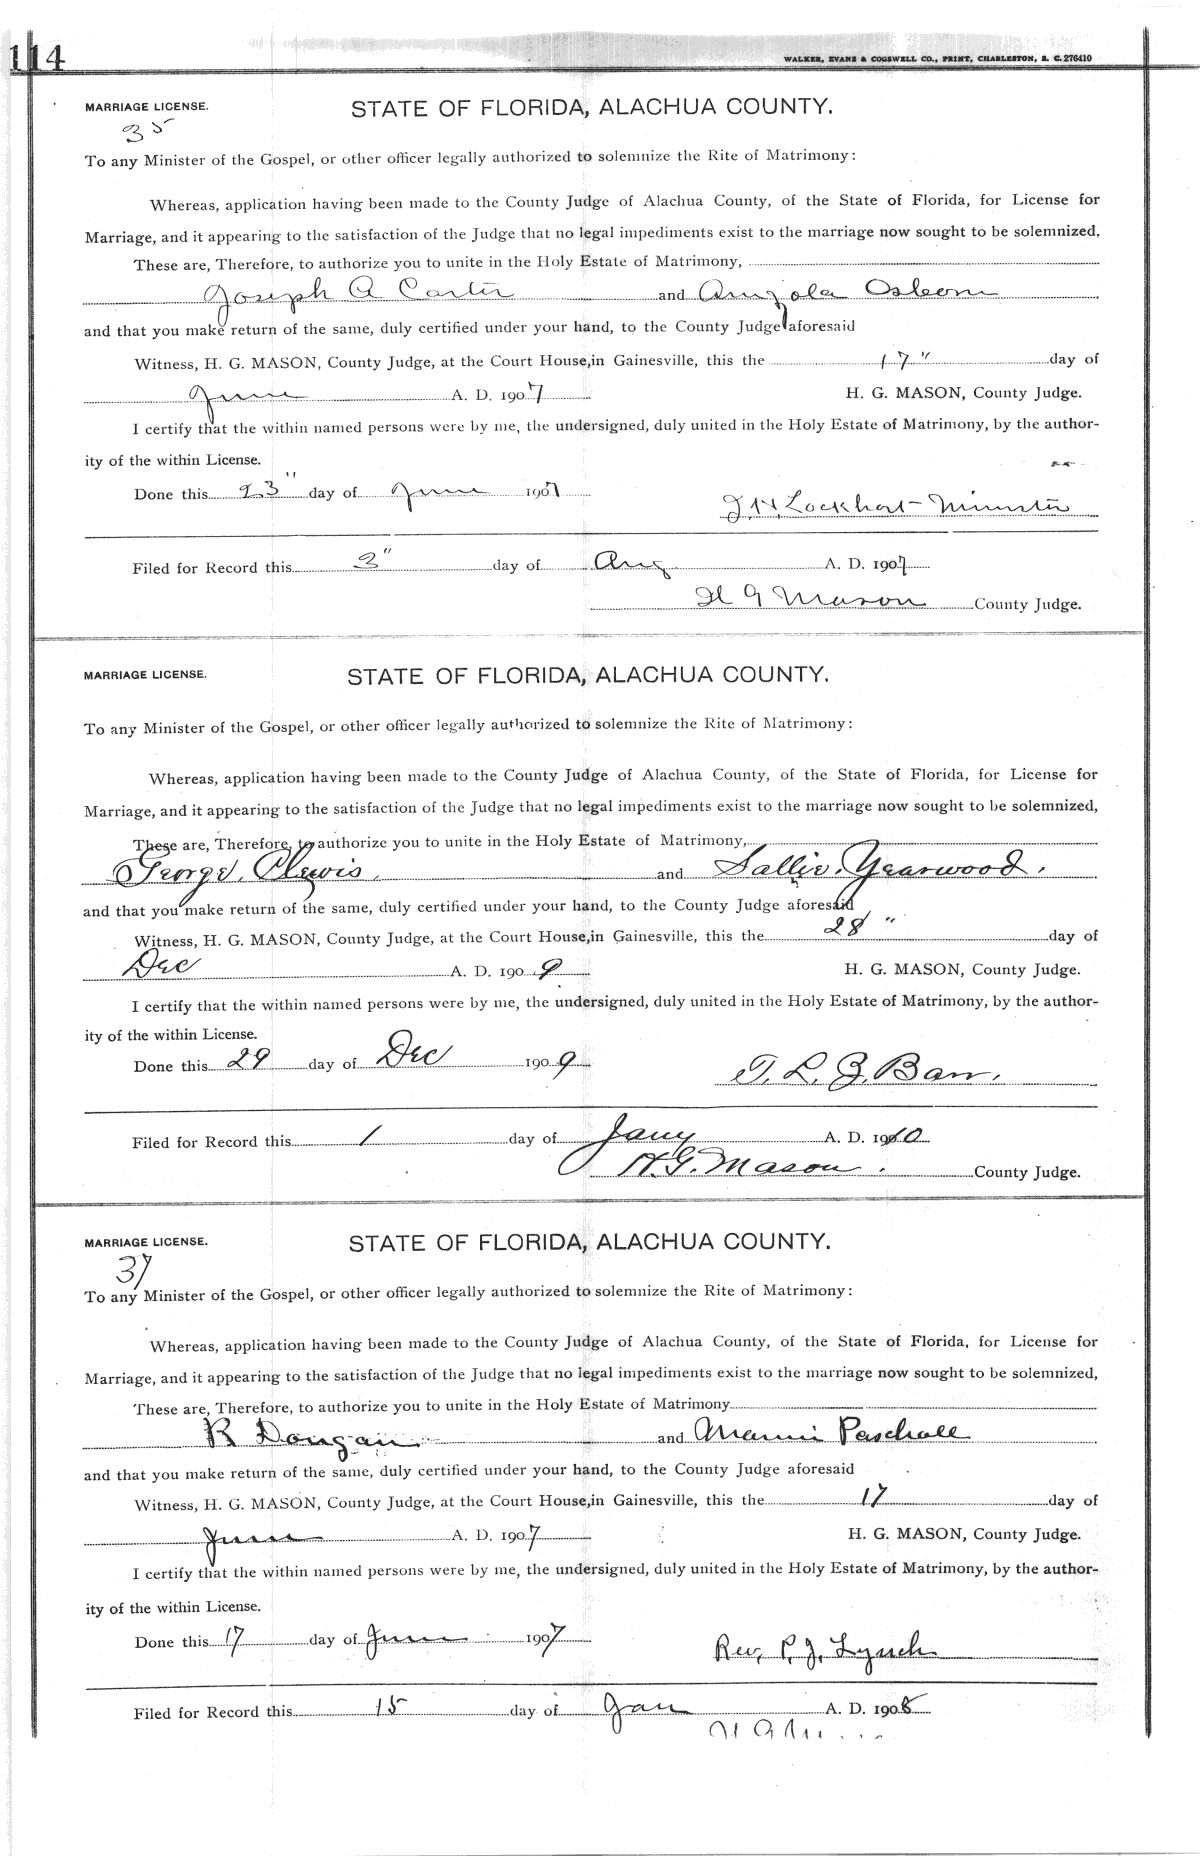 114
WALKER, EVANS & COGSWELL CO., PRINT, CHARLESTON, S. C. 276410
MARRIAGE LICENSE. STATE OF FLORIDA, ALACHUA COUNTY.
35
To any Minister of the Gospel, or other officer legally authorized to solemnize the Rite of Matrimony:
Whereas, application having been made to the County Judge of Alachua County, of the State of Florida, for License for
Marriage, and it appearing to the satisfaction of the Judge that no legal impediments exist to the marriage now sought to be solemnized,
These are, Therefore, to authorize you to unite in the Holy Estate of Matrimony,
Joseph A Carter and Angola Osborn
and that you make return of the same, duly certified under your hand, to the County Judge aforesaid
Witness, H. G. MASON, County Judge, at the Court House, in Gainesville, this the 17" day of
June A. D. 1907 H. G. MASON, County Judge.
I certify that the within named persons were by me, the undersigned, duly united in the Holy Estate of Matrimony, by the author-
ity of the within License.
Done this 23" day of June 1907
J. H. Lockhart - Minister
Filed for Record this 3" day of Aug A. D. 1907
H G Mason County Judge.
MARRIAGE LICENSE. STATE OF FLORIDA, ALACHUA COUNTY.
To any Minister of the Gospel, or other officer legally authorized to solemnize the Rite of Matrimony:
Whereas, application having been made to the County Judge of Alachua County, of the State of Florida, for License for
Marriage, and it appearing to the satisfaction of the Judge that no legal impediments exist to the marriage now sought to be solemnized,
These are, Therefore, to authorize you to unite in the Holy Estate of Matrimony,
George. Clewis. and Sallie. Yearwood.
and that you make return of the same, duly certified under your hand, to the County Judge aforesaid
Witness, H. G. MASON, County Judge, at the Court House, in Gainesville, this the 28" day of
Dec A. D. 1909 H. G. MASON, County Judge.
I certify that the within named persons were by me, the undersigned, duly united in the Holy Estate of Matrimony, by the author-
ity of the within License.
Done this 29 day of Dec 1909 T. L. Z. Barr.
Filed for Record this 1 day of Jany A. D. 1910
H. G. Mason. County Judge.
MARRIAGE LICENSE. STATE OF FLORIDA, ALACHUA COUNTY.
37
To any Minister of the Gospel, or other officer legally authorized to solemnize the Rite of Matrimony:
Whereas, application having been made to the County Judge of Alachua County, of the State of Florida, for License for
Marriage, and it appearing to the satisfaction of the Judge that no legal impediments exist to the marriage now sought to be solemnized,
These are, Therefore, to authorize you to unite in the Holy Estate of Matrimony
R Dougan and Mamie Paschall
and that you make return of the same, duly certified under your hand, to the County Judge aforesaid
Witness, H. G. MASON, County Judge, at the Court House, in Gainesville, this the 17 day of
June A. D. 1907 H. G. MASON, County Judge.
I certify that the within named persons were by me, the undersigned, duly united in the Holy Estate of Matrimony, by the author-
ity of the within License.
Done this 17 day of June 1907
Rev. P. J. Lynch
Filed for Record this 15 day of Jan A. D. 1908